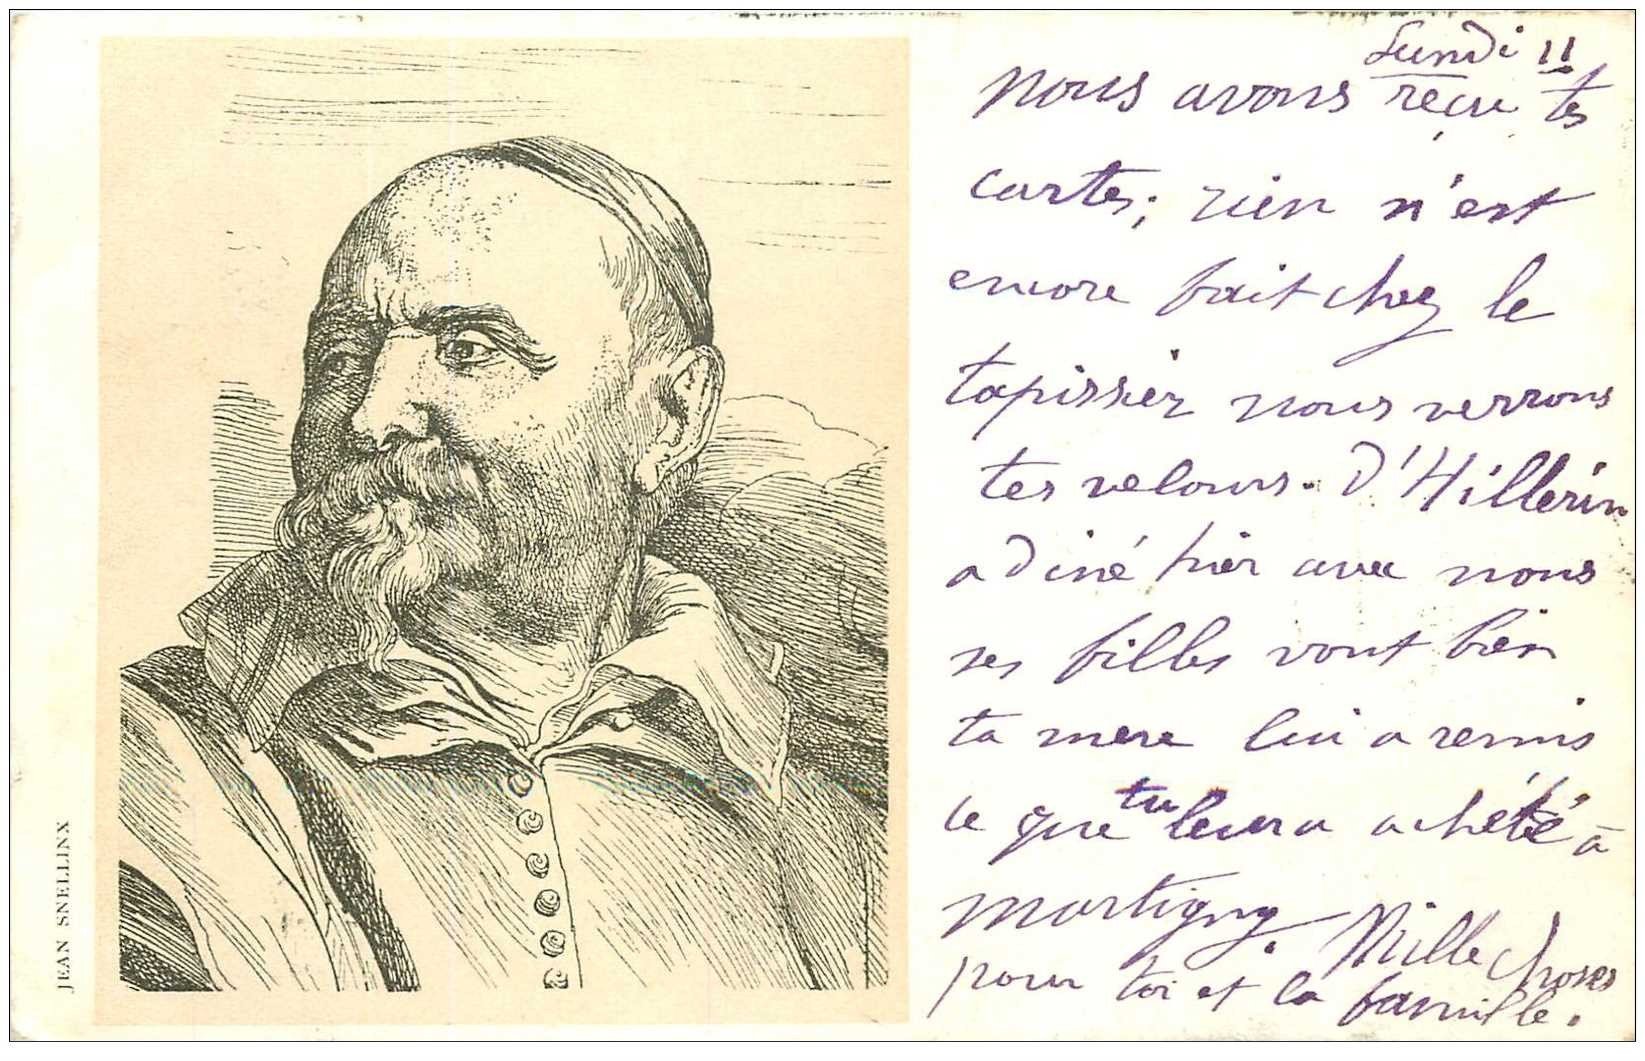 JEAN SNELLINX
Lundi 11
Nous avons reçu tes
cartes; rien n'est
encore fait chez le
tapissier nous verrons
tes velours. D'Hillerin
a diné hier avec nous
ses filles vont bien
ta mere lui a remis
ce que tu leur a achété à
Martigny. Mille choses
pour toi et la famille.